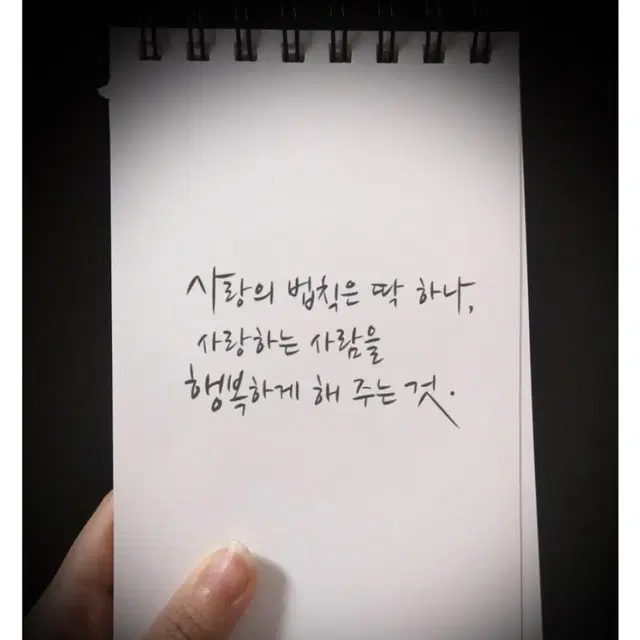 사랑의 법칙은 딱 하나,
사랑하는 사람을
행복하게 해 주는 것.